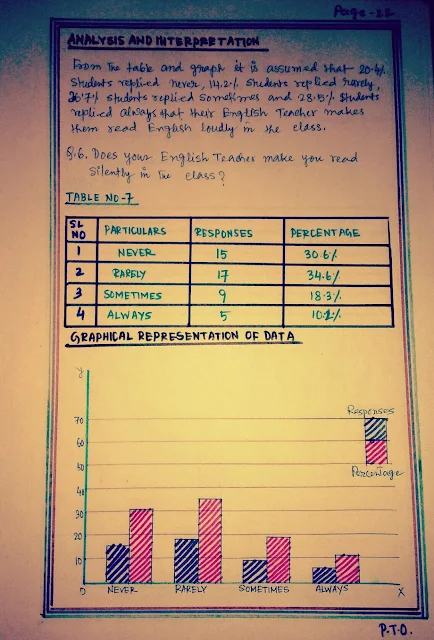 Page-22
ANALYSIS AND INTERPRETATION
From the table and graph it is assumed that 20.4%
students replied never, 14.2% students replied rarely,
36.7% students replied sometimes and 28.5% students
replied always that their English Teacher makes
them read English loudly in the class.
Q.6. Does your English Teacher make you read
silently in the class?
TABLE NO-7
SL NO PARTICULARS RESPONSES PERCENTAGE
1 NEVER 15 30.6%
2 RARELY 17 34.6%
3 SOMETIMES 9 18.3%
4 ALWAYS 5 10.2%
GRAPHICAL REPRESENTATION OF DATA
Y
Responses
70
60
Percentage
50
40
30
20
10
0 NEVER RARELY SOMETIMES ALWAYS X
P.T.O.